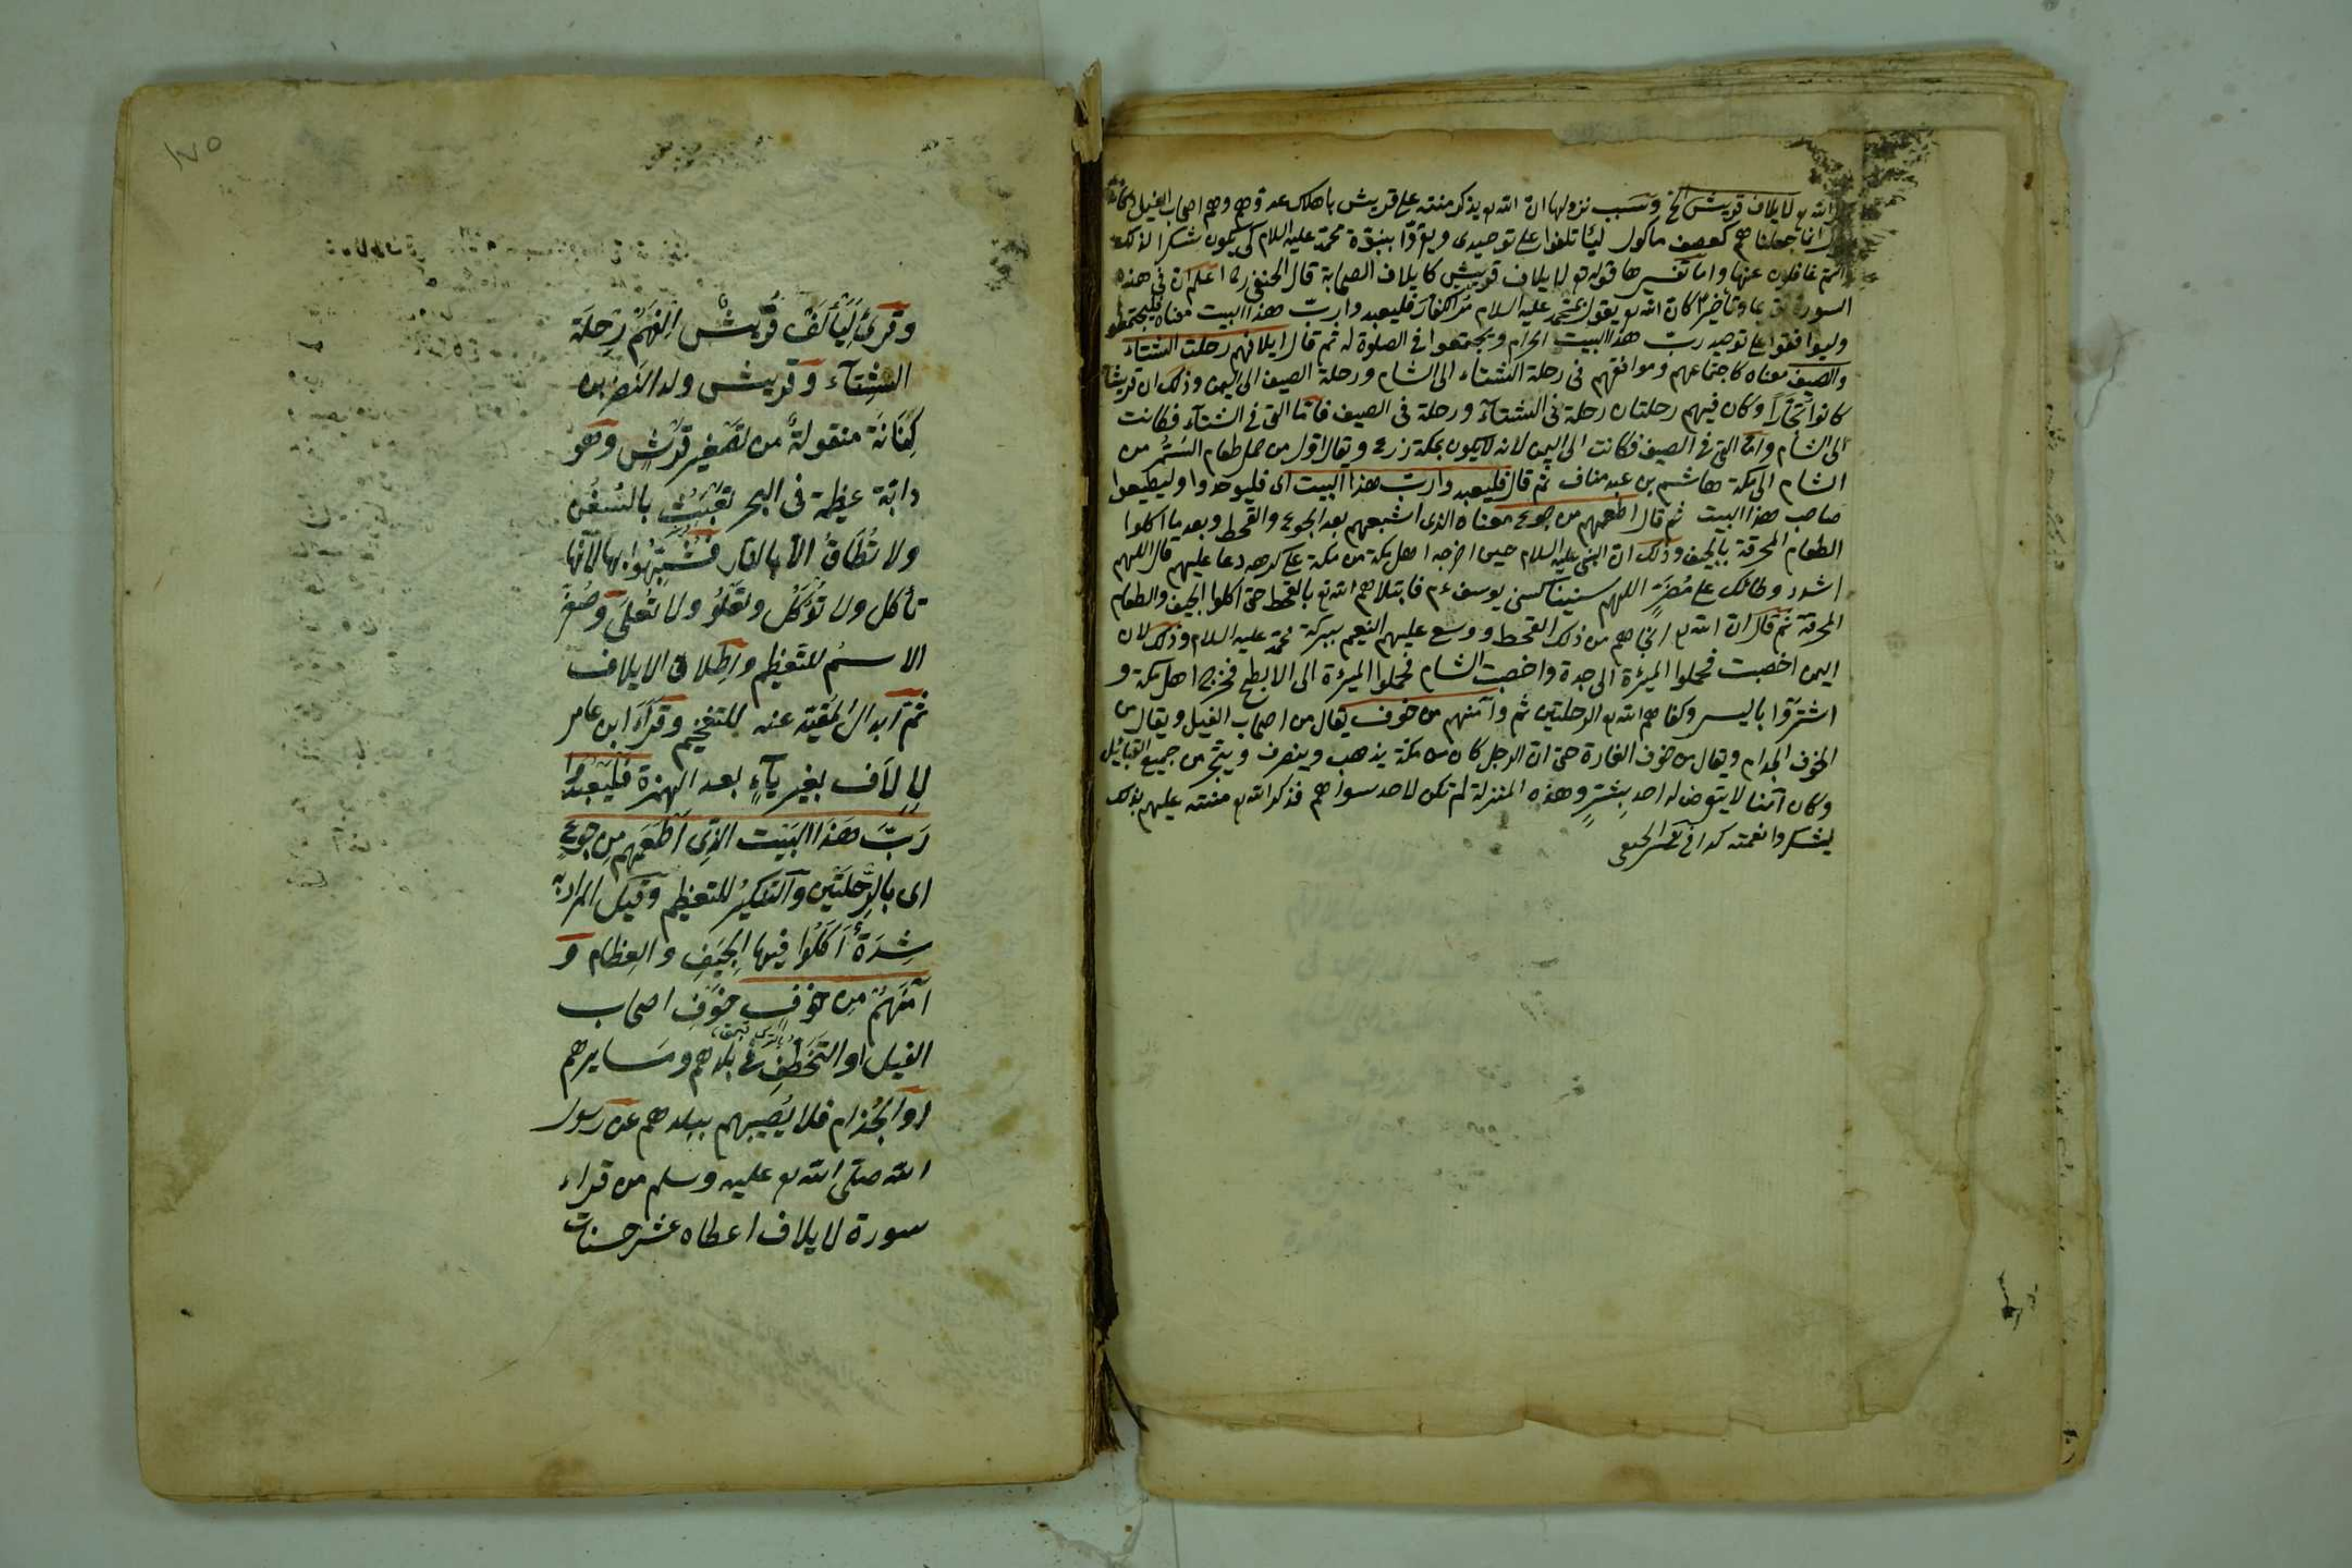 الله تع لايلاف قريش الخ وسبب نزولها ان الله تع يذكر منته على قريش باهلاك عدوهم وهم اصحاب الفيل وكانه
انما جعلناهم كعصف ماكول ليأتلفوا على توحيدي ويقروا بنبوة محمد عليه السلام كي يكون شكرا لذلك
انتم غافلون عنها واما تفسيرها قوله تع لايلاف قريش كايلاف الصحابة قال الحنفي رح اعلم ان في هذه
السورة تقديما وتاخيرا كان الله تع يقول يا محمد عليه السلام مر الكفار فليعبدوا رب هذا البيت معناه فليجتمعوا
وليوافقوا على توحيد رب هذا البيت الحرام ويجتمعوا في الصلوة له ثم قال ايلافهم رحلت الشتاء
والصيف معناه كاجتماعهم وموافقهم في رحلة الشتاء الى الشام ورحلة الصيف الى اليمن وذلك ان قريشا
كانوا تجارا وكان فيهم رحلتان رحلة في الشتآء ورحلة في الصيف فاما التي في الشتآء فكانت
الى الشام واما التي في الصيف فكانت الى اليمن لانه لا يكون بمكة زرع ويقال اول من حمل طعام السمر من
الشام الى مكة هاشم بن عبد مناف ثم قال فليعبدوا رب هذا البيت اى فليوحدوا وليطيعوا
صاحب هذا البيت ثم قال اطعمهم من جوع معناه الذى اشبعهم بعد الجوع والقحط وبعد ما اكلوا
الطعام المحرقة بالجيف وذلك ان النبي عليه السلام حين اخرجه اهل مكة من مكة على كرهه دعا عليهم قال اللهم
اشدد وطائك على مضر اللهم سنينا كسني يوسف ءم فابتلاهم الله تع بالقحط حتى اكلوا الجيف والطعام
المحرقة ثم قال ان الله تع انجاهم من ذلك القحط ووسع عليهم النعيم ببركة محمد عليه السلام وذلك لان
اليمن اخصبت فحملوا الميرة الى جدة واخصبت الشام فحملوا الميرة الى الابطح فخرج اهل مكة و
اشتروا باليسر وكفاهم الله تع الرحلتين ثم وآمنهم من خوف يقال من اصحاب الفيل ويقال من
الخوف الجذام ويقال من خوف الغارة حتى ان الرجل كان من مكة يذهب وينصرف ويتجر من جميع القبائل
وكان آمنا لا يتعرض له احد بشتر وهذه المنزلة لم تكن لاحد سواهم فذكر الله تع منته عليهم بذلك
ليشكروا نعمته كذا في تفسير الحنفي
١٧٥
وقرئ ليألف قريش الفهم رحلة
الشتآء وقريش ولد النضر بن
كنانة منقولة من تصغير قرش وهو
دابة عظيمة فى البحر تعبث بالسفن
ولا تطاق الا بالنار فشبهوا بها لانها
تأكل ولا تؤكل وتعلو ولا تعلى وصغر
الاسم للتعظيم واطلاق الايلاف
ثم ابدال المقيد عنه للتفخيم وقرأ ابن عامر
لالاف بغير يآء بعد الهمزة فليعبدوا
رب هذا البيت الذى اطعمهم من جوع
اى بالرحلتين والتنكير للتعظيم وقيل المراد به
شدة اكلوا فيها الجيف والعظام و
آمنهم من خوف خوف اصحاب
الفيل او التخطف فى بلدهم ومسايرهم
او الجذام فلا يصيبهم ببلدهم عن رسول
الله صلى الله تع عليه وسلم من قراء
سورة لايلاف اعطاه عشر حسنات